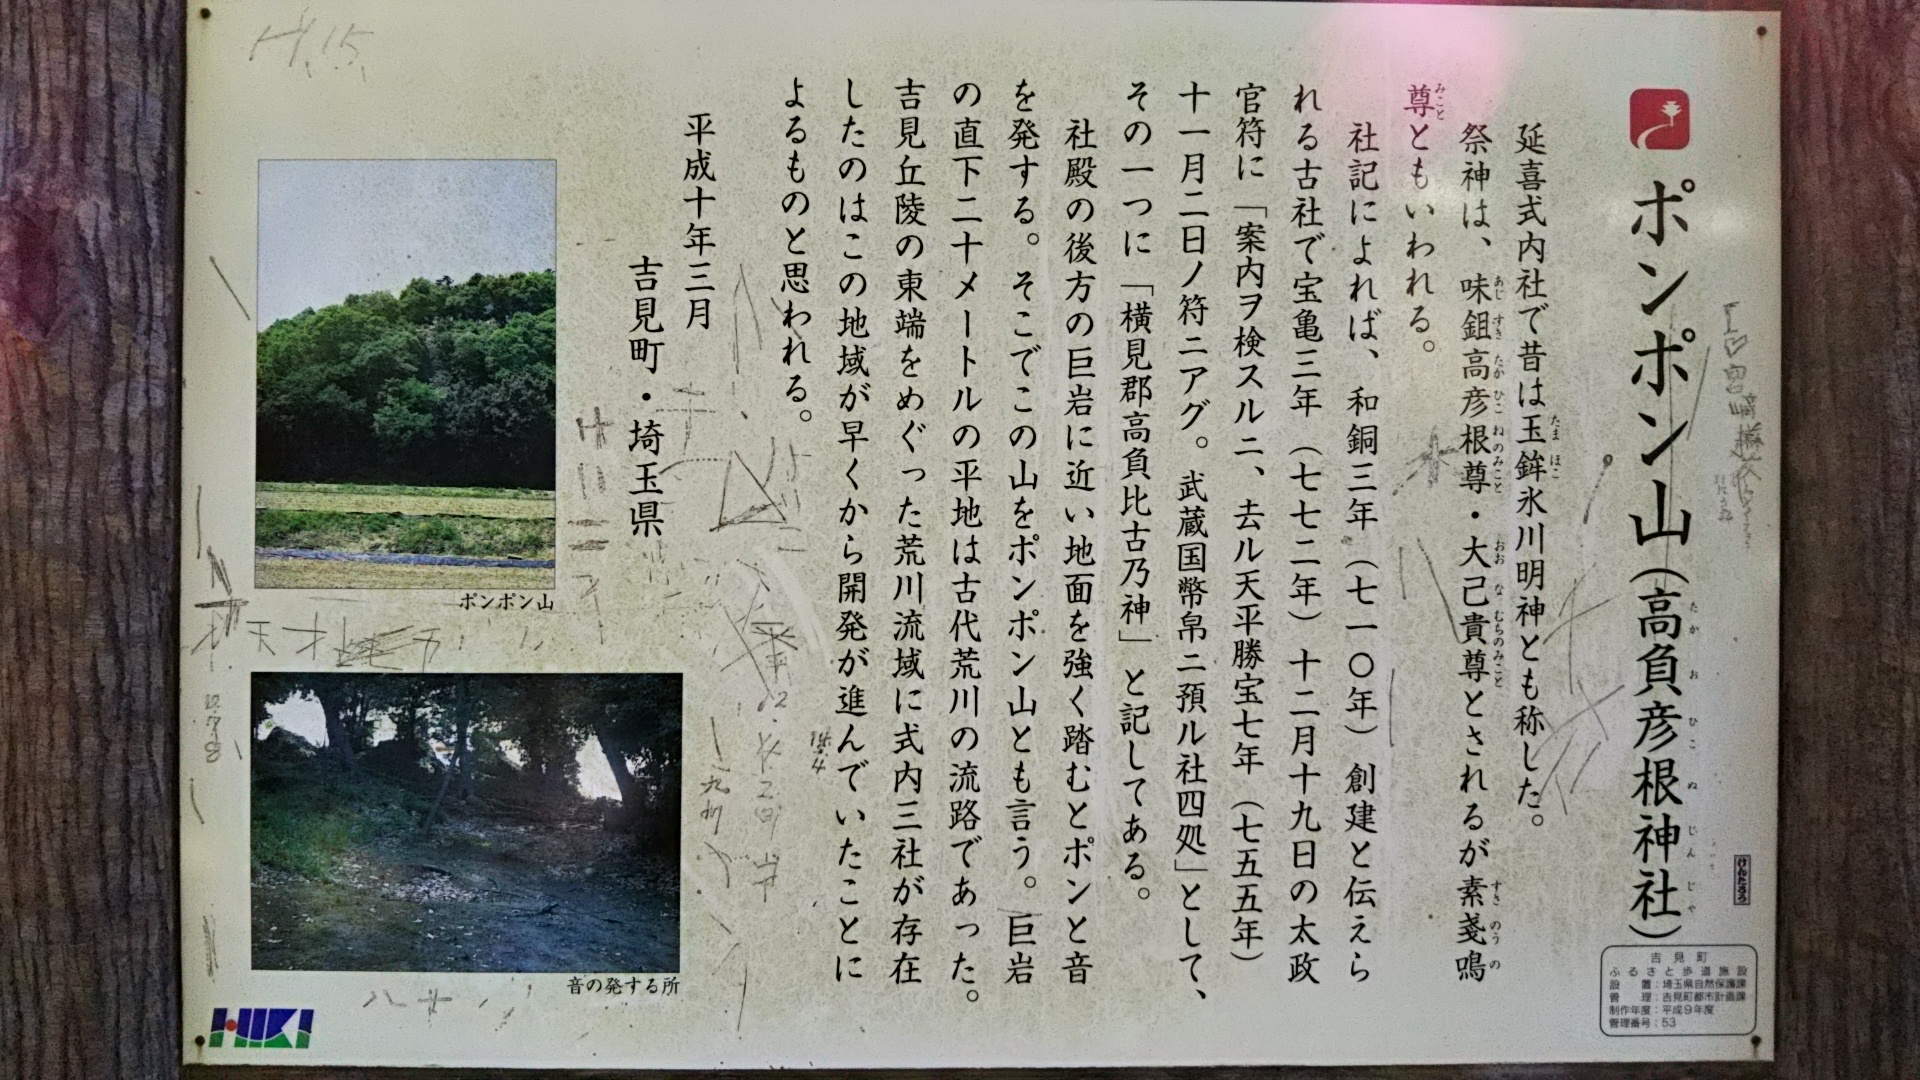 ポンポン山(高負彦根神社)
たか お ひこ ね じん じゃ
延喜式内社で昔は玉鉾氷川明神とも称した。
たま ほこ
祭神は、味鉏高彦根尊・大己貴尊とされるが素戔嗚
あじ すき たか ひこ ねのみこと おお な むちのみこと すさ のう の
尊ともいわれる。
みこと
社記によれば、和銅三年(七一〇年)創建と伝えら
れる古社で宝亀三年(七七二年)十二月十九日の太政
官符に「案内ヲ検スルニ、去ル天平勝宝七年(七五五年)
十一月二日ノ符ニアグ。武蔵国幣帛ニ預ル社四処」として、
その一つに「横見郡高負比古乃神」と記してある。
社殿の後方の巨岩に近い地面を強く踏むとポンと音
を発する。そこでこの山をポンポン山とも言う。巨岩
の直下二十メートルの平地は古代荒川の流路であった。
吉見丘陵の東端をめぐった荒川流域に式内三社が存在
したのはこの地域が早くから開発が進んでいたことに
よるものと思われる。
平成十年三月
吉見町・埼玉県
ポンポン山
音の発する所
HIKI
吉見町
ふるさと歩道施設
設 置:埼玉県自然保護課
管 理:吉見町都市計画課
制作年度:平成9年度
管理番号:53
けんたろう
H.15.